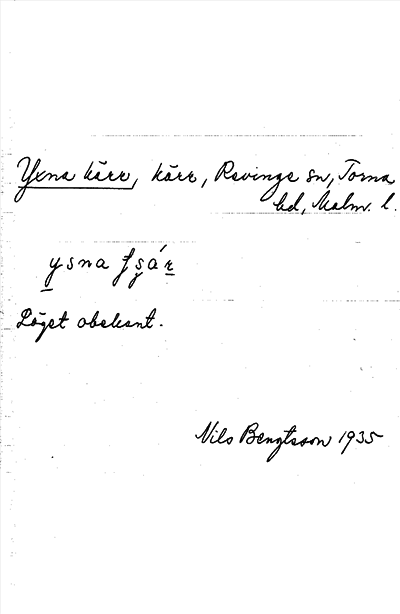 Yxna kärr, kärr, Revinge sn, Torna
hd, Malm. l.
ysna ʃʂár
Läget obekant.
Nils Bengtsson 1935